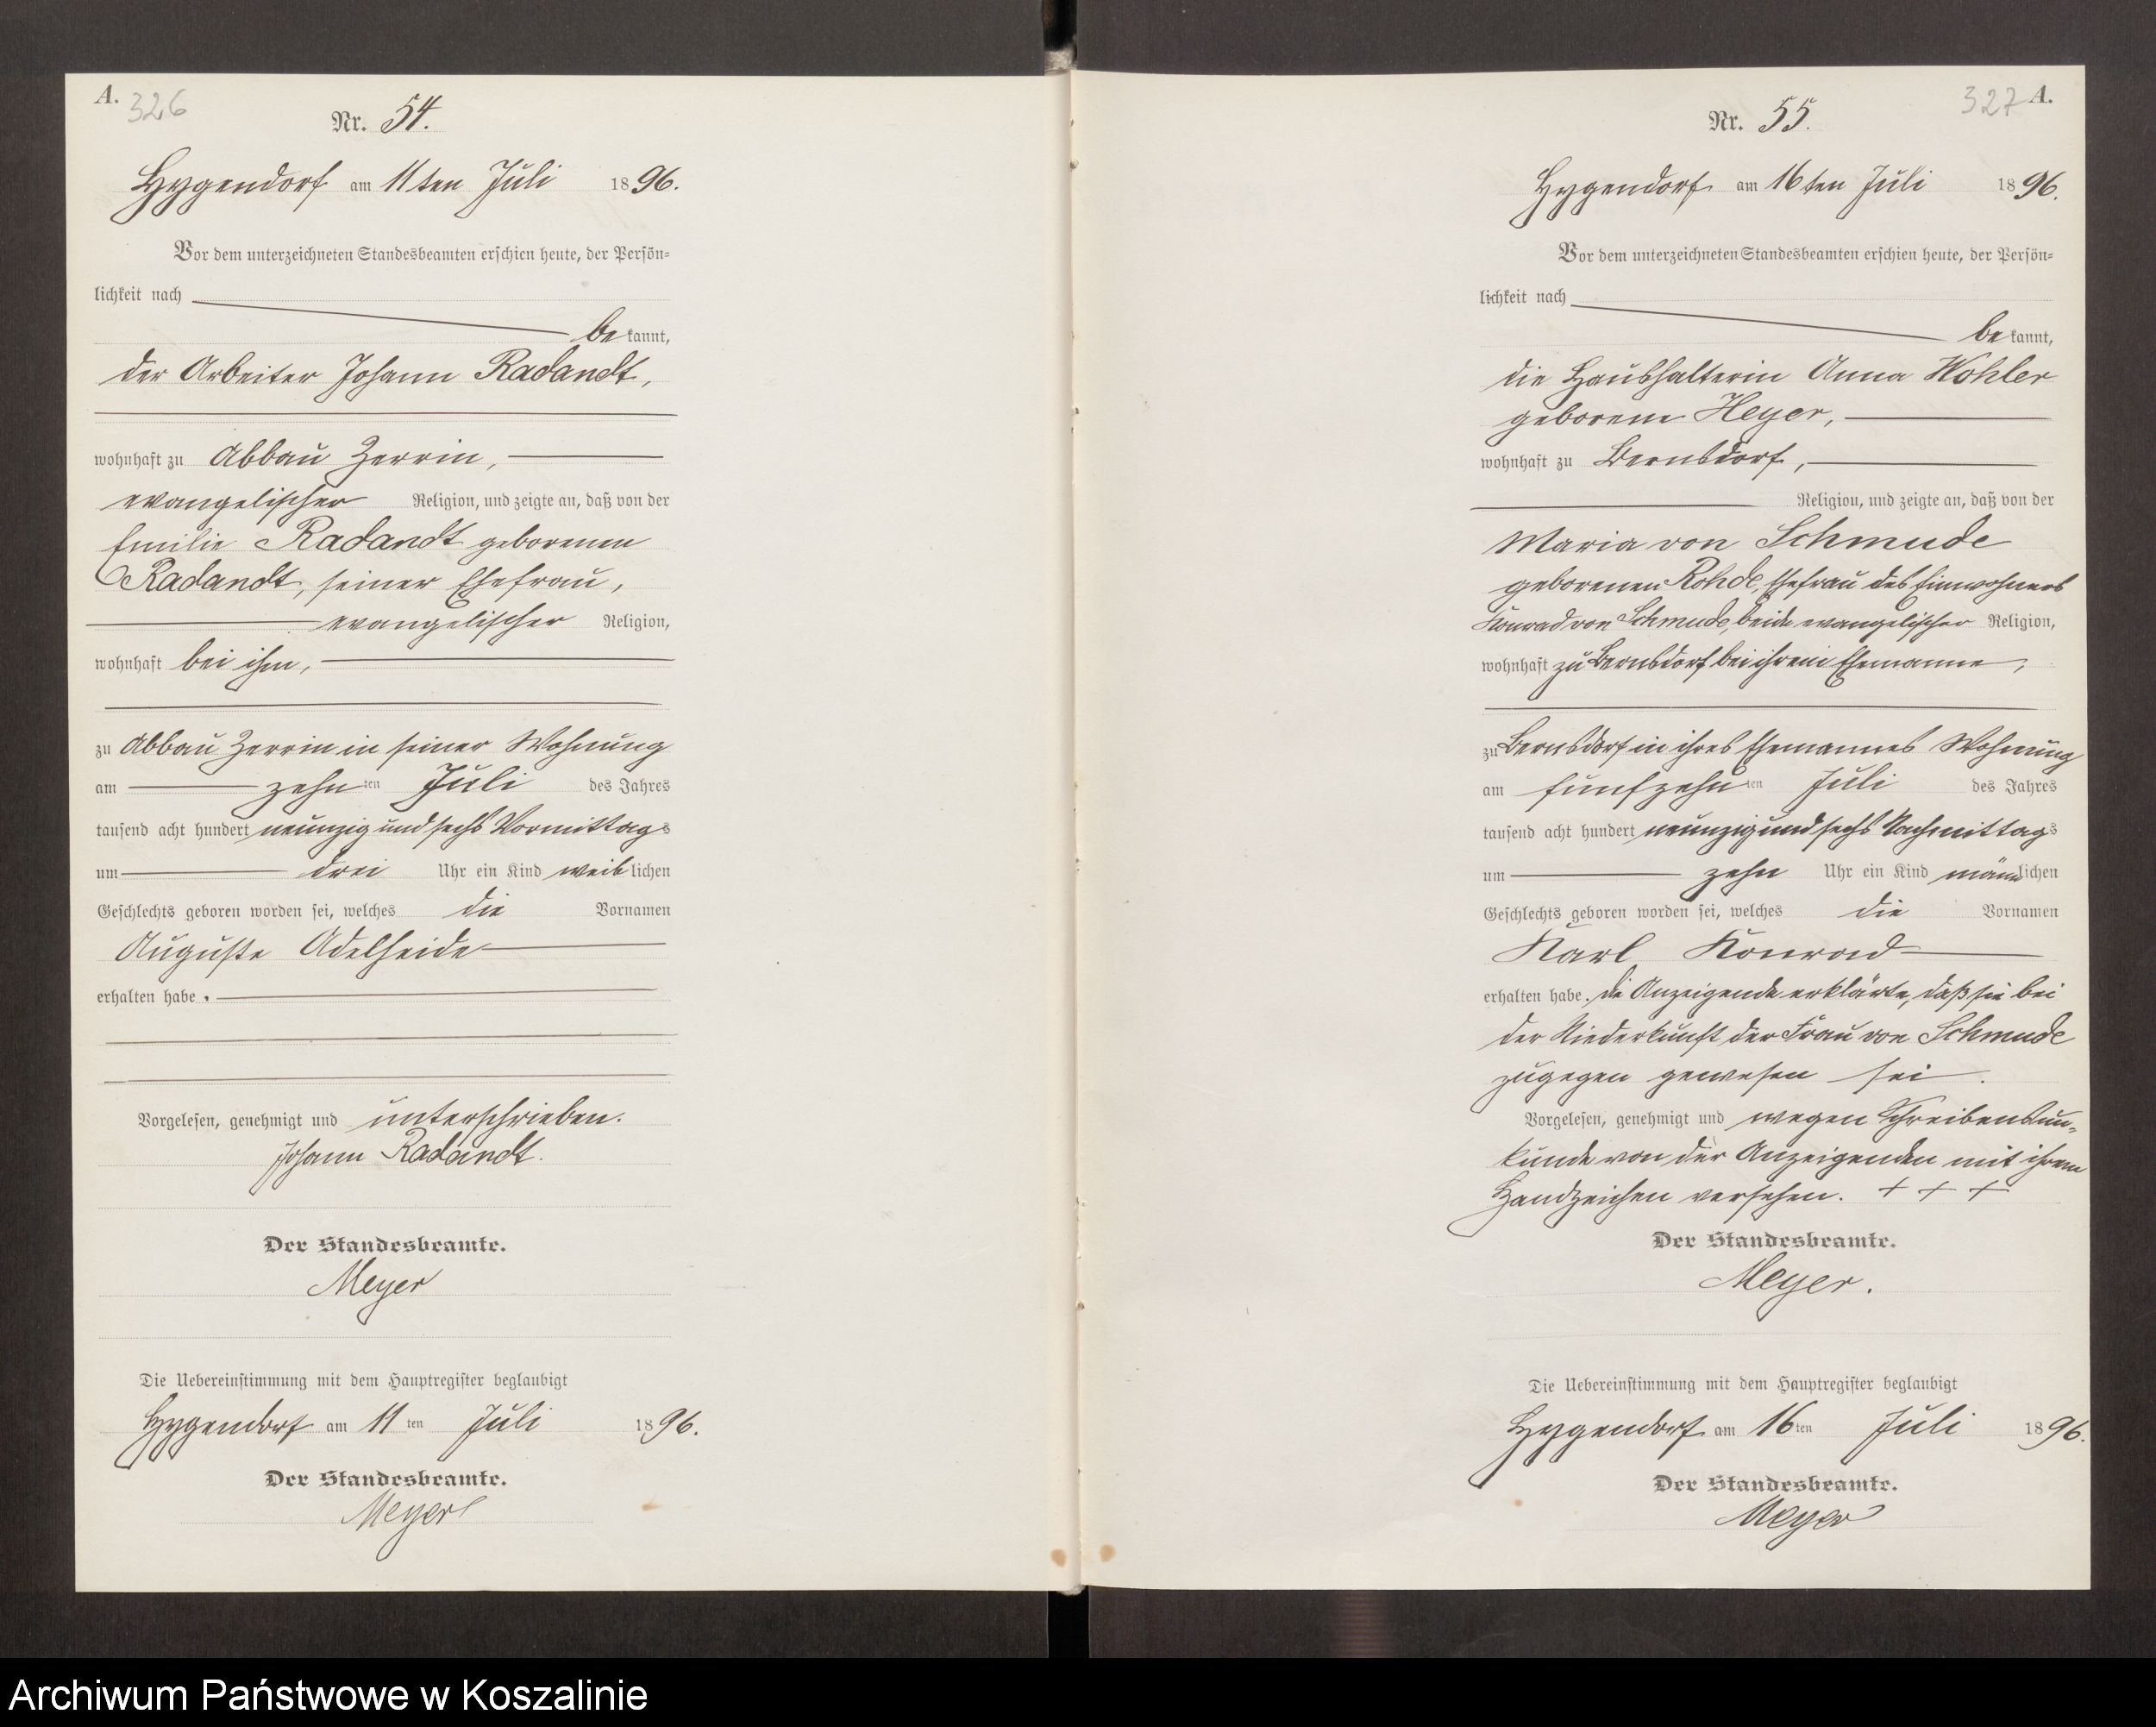 A. 326
Nr. 54.
Hygendorf am 11ten Juli 1896.
Vor dem unterzeichneten Standesbeamten erschien heute, der Persön=
lichkeit nach
bekannt,
der Arbeiter Johann Radandt,
wohnhaft zu Abbau Zerrin,
evangelischer Religion, und zeigte an, daß von der
Emilie Radandt geborenen
Radandt, seiner Ehefrau,
evangelischer Religion,
wohnhaft bei ihm,
zu Abbau Zerrin in seiner Wohnung
am zehnten Juli des Jahres
tausend acht hundert neunzig und sechs Vormittags
um drei Uhr ein Kind weiblichen
Geschlechts geboren worden sei, welches die Vornamen
Auguste Adelheide
erhalten habe.
Vorgelesen, genehmigt und unterschrieben.
Johann Radandt.
Der Standesbeamte.
Meyer
Die Uebereinstimmung mit dem Hauptregister beglaubigt
Hygendorf am 11ten Juli 1896.
Der Standesbeamte.
Meyer
327 A.
Nr. 55.
Hygendorf am 16ten Juli 1896.
Vor dem unterzeichneten Standesbeamten erschien heute, der Persön=
lichkeit nach
bekannt,
die Haushalterin Anna Kohler
geborene Heyer,
wohnhaft zu Bernsdorf,
Religion, und zeigte an, daß von der
Maria von Schmude
geborenen Rohde, Ehefrau des Einwohners
Konrad von Schmude, beide evangelischer Religion,
wohnhaft zu Bernsdorf bei ihrem Ehemanne,
zu Bernsdorf in ihres Ehemannes Wohnung
am fünfzehnten Juli des Jahres
tausend acht hundert neunzig und sechs Nachmittags
um zehn Uhr ein Kind männlichen
Geschlechts geboren worden sei, welches die Vornamen
Karl Konrad
erhalten habe. Die Anzeigende erklärte, daß sie bei
der Niederkunft der Frau von Schmude
zugegen gewesen sei.
Vorgelesen, genehmigt und wegen Schreibensun-
kunde von der Anzeigenden mit ihrem
Handzeichen versehen. + + +
Der Standesbeamte.
Meyer.
Die Uebereinstimmung mit dem Hauptregister beglaubigt
Hygendorf am 16ten Juli 1896.
Der Standesbeamte.
Meyer
Archiwum Państwowe w Koszalinie